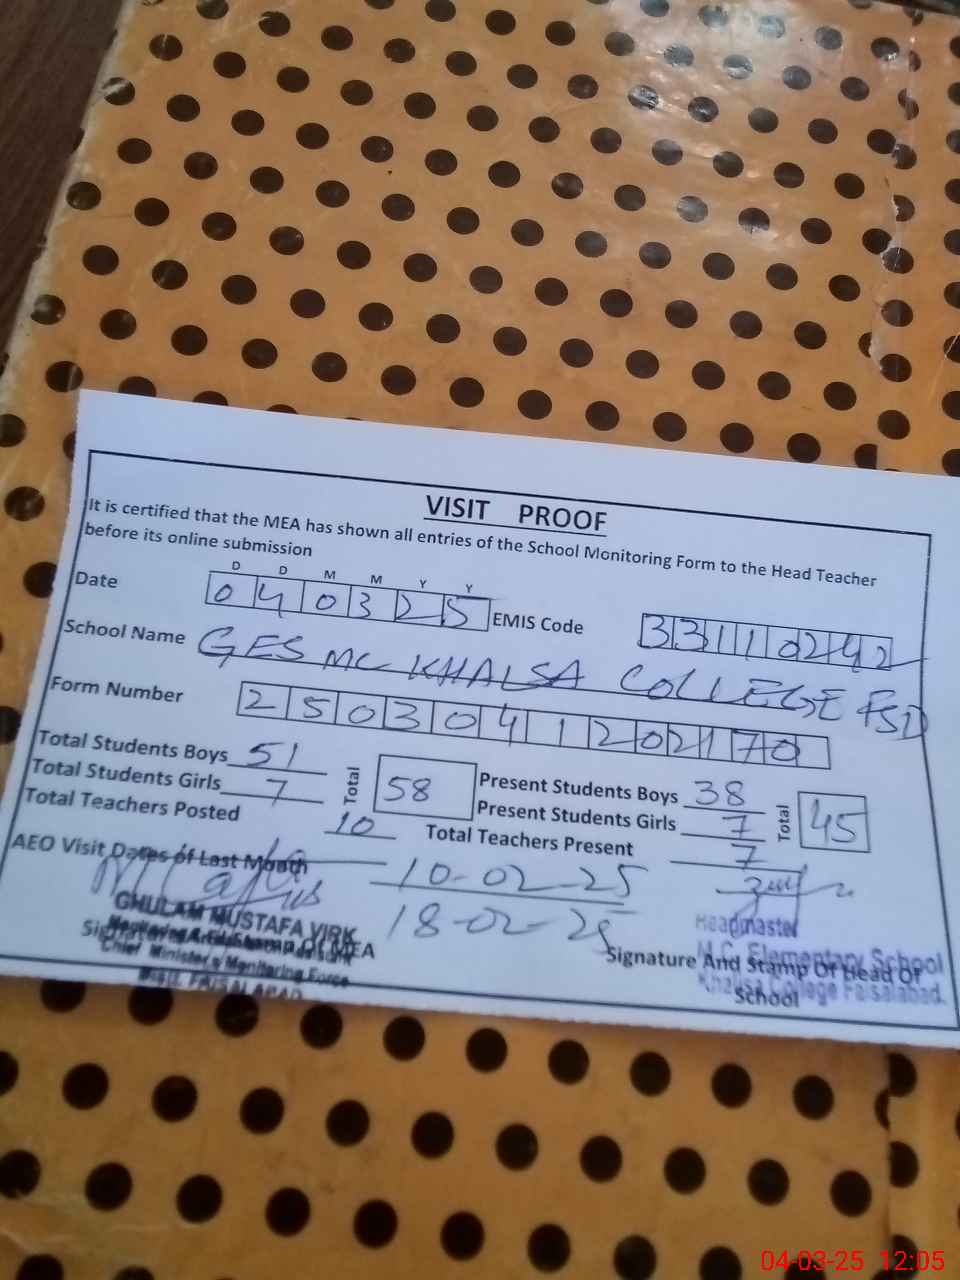 VISIT PROOF
It is certified that the MEA has shown all entries of the School Monitoring Form to the Head Teacher
before its online submission
D D M M Y Y
Date 040325 EMIS Code 33110242
School Name GES MC KHALSA COLLEGE FSD
Form Number 250304120170
Total Students Boys 51 Total 58 Present Students Boys 38 Total 45
Total Students Girls 7 Present Students Girls 7
Total Teachers Posted 10 Total Teachers Present 7
AEO Visit Dates of Last Month 10-02-25
18-02-25
GHULAM MUSTAFA VIRK
Signature And Stamp Of MEA
Chief Minister's Monitoring Force
FAISALABAD
Headmaster
M.C. Elementary School
Signature And Stamp Of Head Of
Khalsa College Faisalabad.
School
04-03-25 12:05